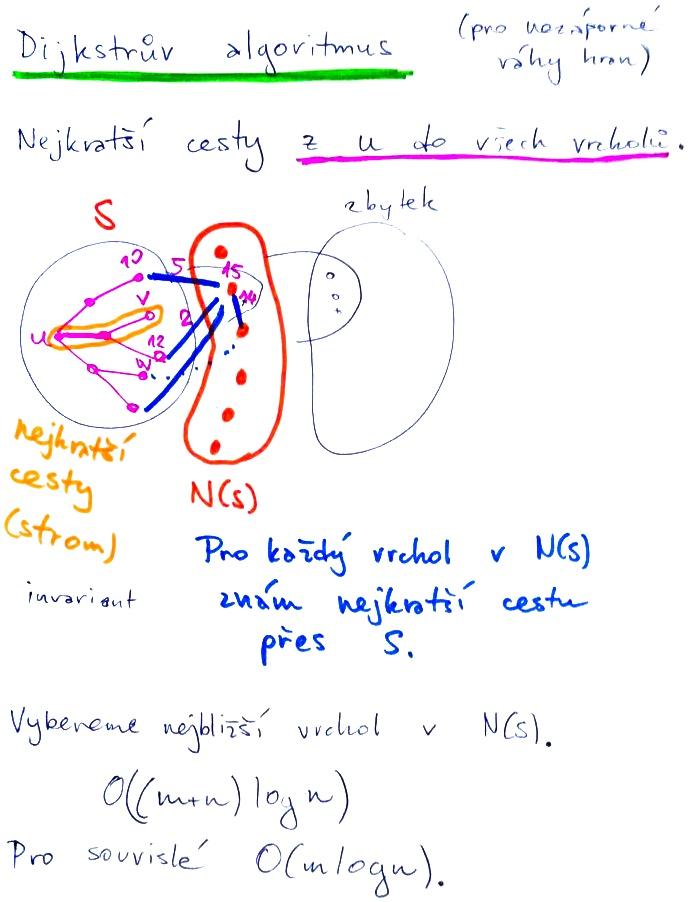 Dijkstrův algoritmus
(pro nezáporné
váhy hran)
Nejkratší cesty z u do všech vrcholů.
zbytek
S
10
5
15
14
v
2
u
12
w
nejkratší
cesty
(strom)
N(S)
Pro každý vrchol v N(S)
znám nejkratší cestu
přes S.
invariant
Vybereme nejbližší vrchol v N(S).
O((m+n) log n)
Pro souvislé O(m log n).